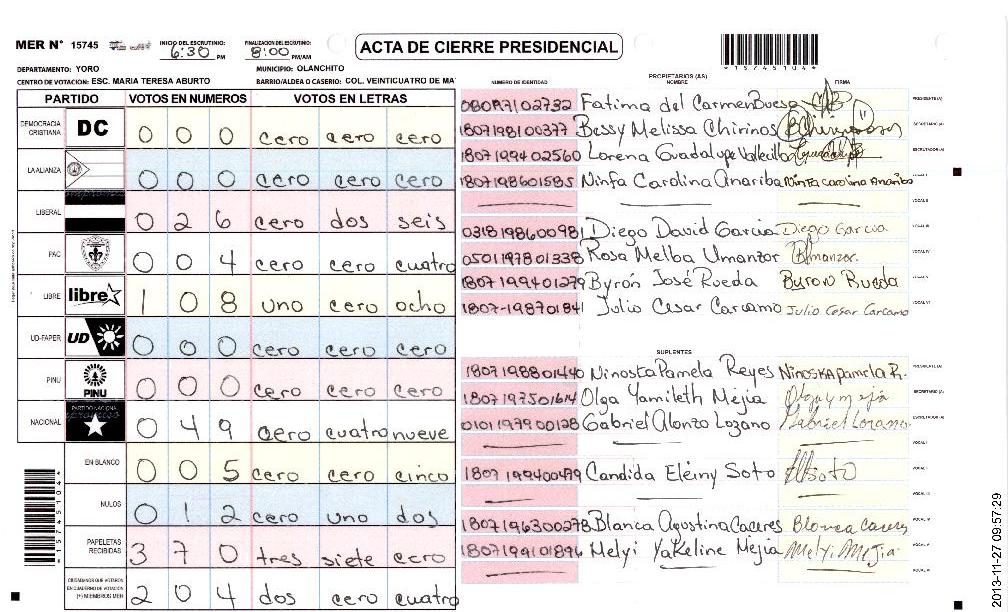 MER N° 15745 INICIO DEL ESCRUTINIO: 6:30 PM FINALIZACION DEL ESCRUTINIO: 8:00 PM/AM
ACTA DE CIERRE PRESIDENCIAL
*15745104*
DEPARTAMENTO: YORO MUNICIPIO: OLANCHITO
CENTRO DE VOTACION: ESC. MARIA TERESA ABURTO BARRIO/ALDEA O CASERIO: COL. VEINTICUATRO DE MA
PARTIDO VOTOS EN NUMEROS VOTOS EN LETRAS
DEMOCRACIA CRISTIANA DC 0 0 0 cero cero cero
LA ALIANZA 0 0 0 cero cero cero
LIBERAL 0 2 6 cero dos seis
PAC 0 0 4 cero cero cuatro
LIBRE libre 1 0 8 uno cero ocho
UD-FAPER UD 0 0 0 cero cero cero
PINU PINU 0 0 0 cero cero cero
NACIONAL PARTIDO NACIONAL 0 4 9 cero cuatro nueve
EN BLANCO 0 0 5 cero cero cinco
NULOS 0 1 2 cero uno dos
PAPELETAS RECIBIDAS 3 7 0 tres siete cero
CIUDADANOS QUE VOTARON EN CUADERNO DE VOTACION (+) MIEMBROS MER 2 0 4 dos cero cuatro
*15745104*
PROPIETARIOS (AS)
NUMERO DE IDENTIDAD NOMBRE FIRMA
Fatima del Carmen Bueso PRESIDENTE (A)
1807198100377 Bessy Melissa Chirinos SECRETARIO (A)
1807199402560 Lorena Guadalupe Vallecillo ESCRUTADOR (A)
1807198601585 Ninfa Carolina Anariba Ninfa Carolina Anariba VOCAL I
VOCAL II
0318198600981 Diego David Garcia Diego Garcia VOCAL III
0501197801338 Rosa Melba Umanzor RUmanzor. VOCAL IV
1807199401279 Byrón José Rueda Byron Rueda VOCAL V
1807-198701841 Julio Cesar Carcamo Julio Cesar Carcamo VOCAL VI
SUPLENTES
1807198801440 Ninoska Pamela Reyes Ninoska Pamela R. PRESIDENTE (A)
1807197501614 Olga Yamileth Mejia Olga y mejia SECRETARIO (A)
0101197900128 Gabriel Alonzo Lozano Gabriel Lozano ESCRUTADOR (A)
VOCAL I
1807199400479 Candida Eleiny Soto VOCAL II
VOCAL III
1807196300278 Blanca Agustina Caceres Blanca Caceres VOCAL IV
1807199101896 Melyi Yakeline Mejia Melyi Mejia VOCAL V
VOCAL VI
2013-11-27 09:57:29